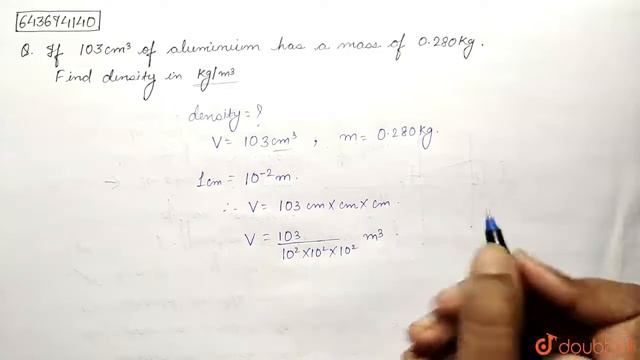 6436941140
Q. If 103cm³ of aluminium has a mass of 0.280kg.
Find density in kg/m³
density = ?
V = 103cm³ , m = 0.280kg.
1cm = 10⁻² m.
∴ V = 103 cm × cm × cm.
V = 103 / 10² × 10² × 10² m³.
doubtnut